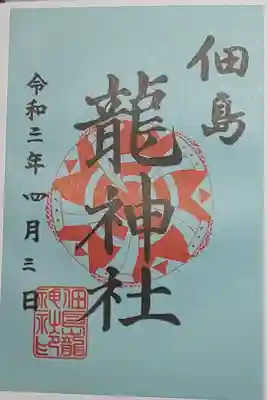 佃島
龍神社
令和二年四月三日
佃島龍
神社印